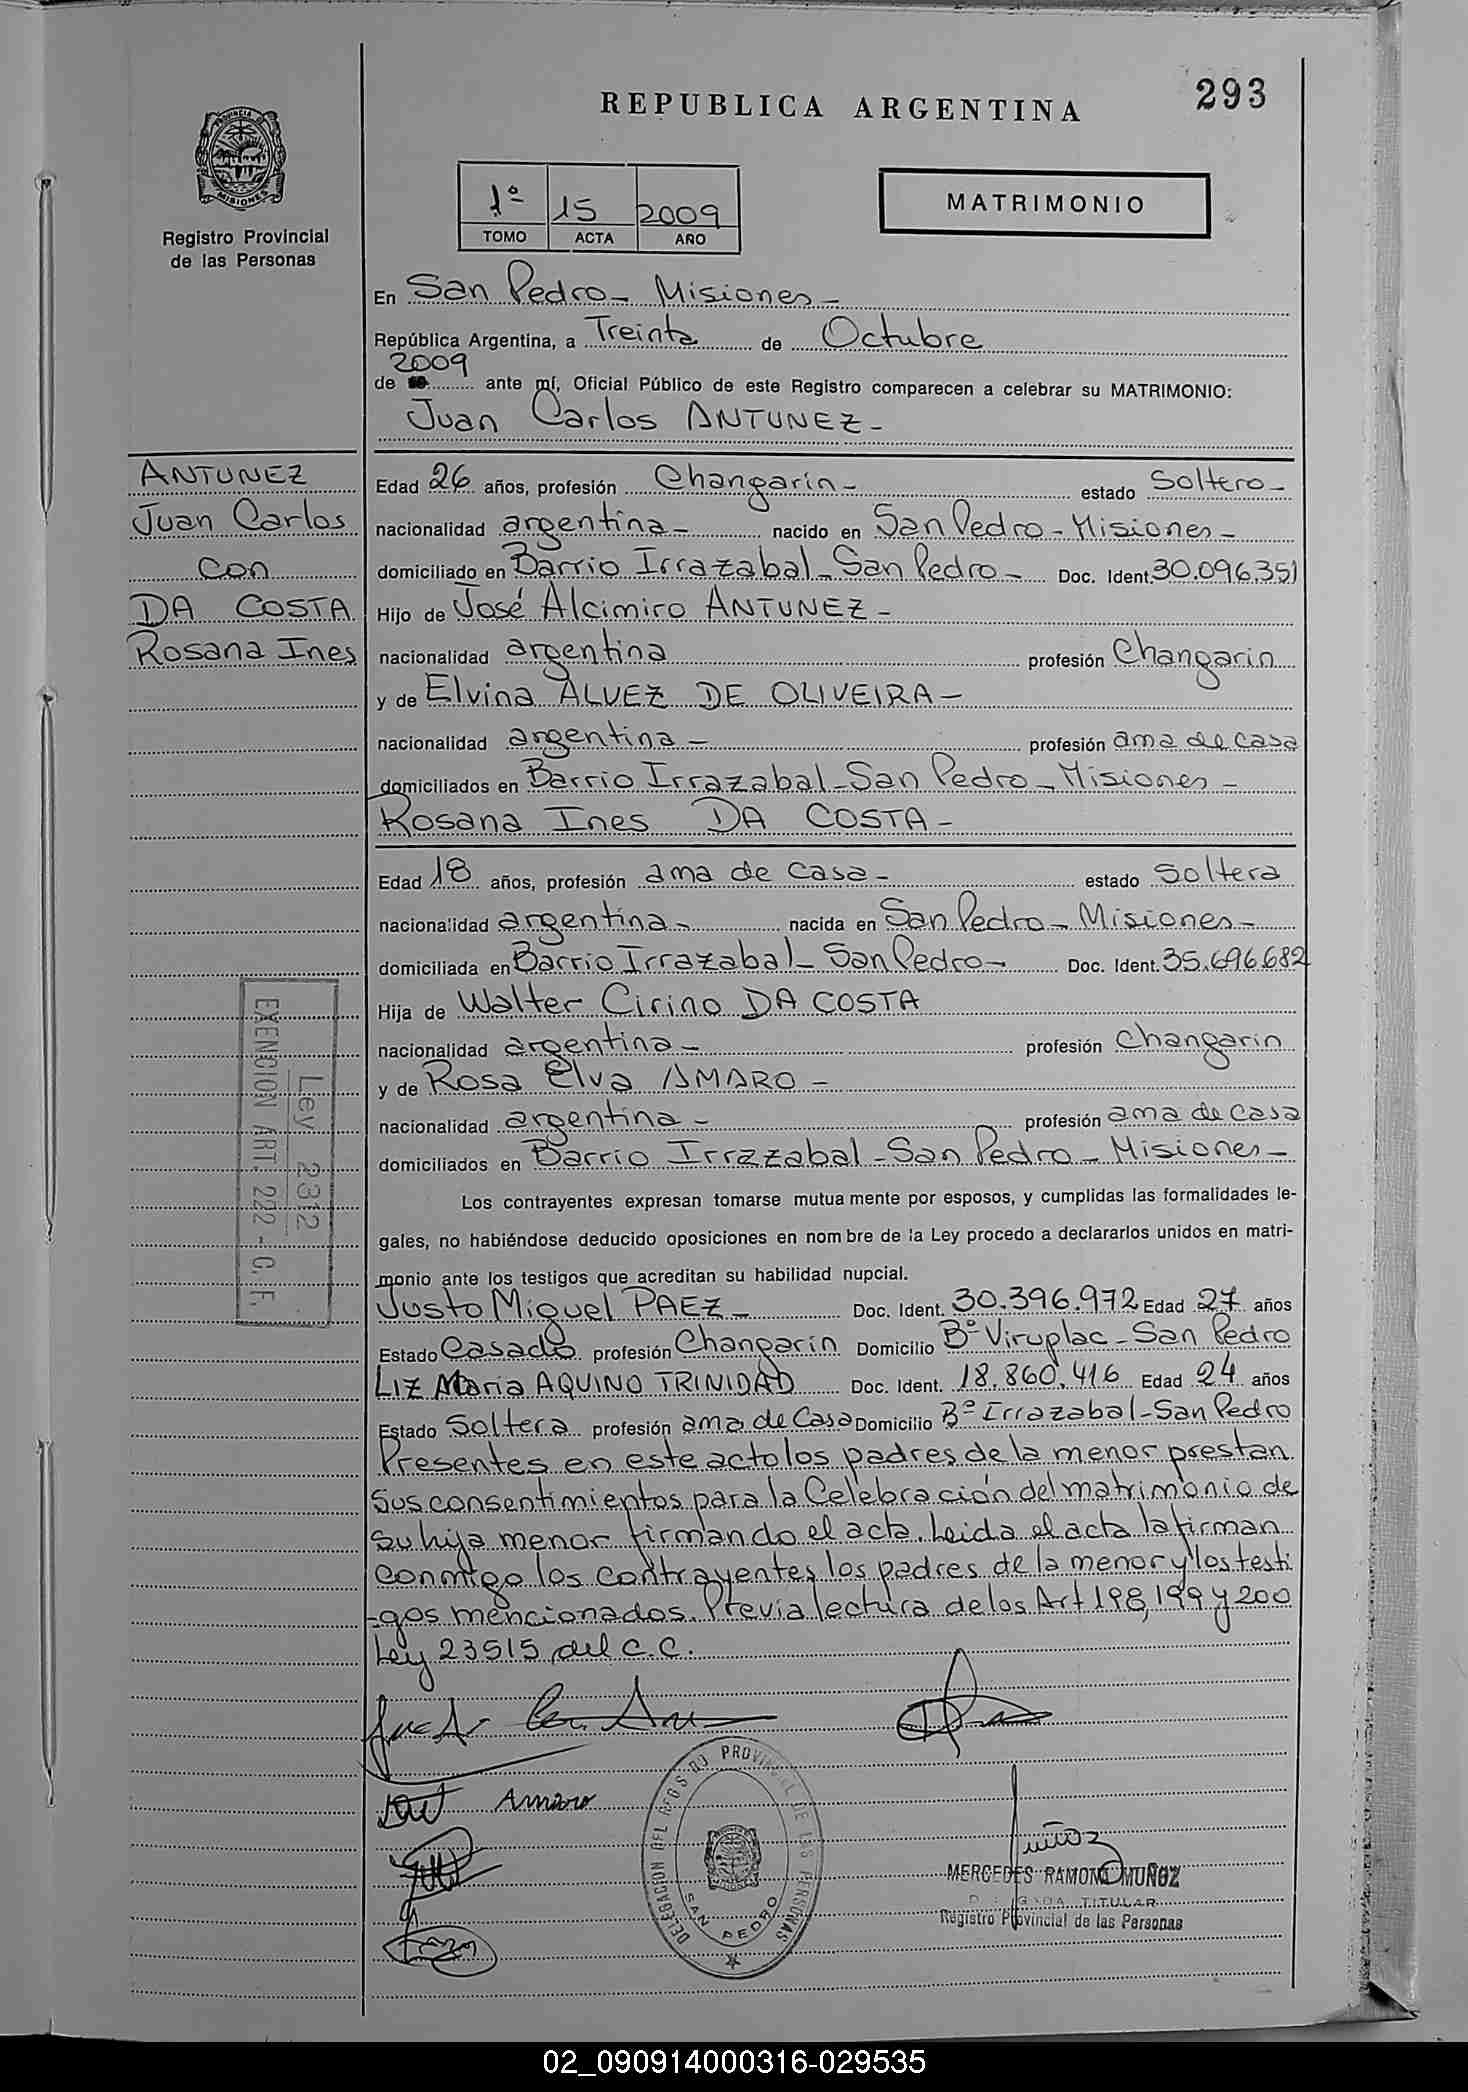 293
REPUBLICA ARGENTINA
PROVINCIA DE
MISIONES
Registro Provincial
de las Personas
1º 15 2009
TOMO ACTA AÑO
MATRIMONIO
En San Pedro - Misiones -
República Argentina, a Treinta de Octubre
2009
de ante mí, Oficial Público de este Registro comparecen a celebrar su MATRIMONIO:
Juan Carlos ANTUNEZ -
ANTUNEZ
Juan Carlos
con
DA COSTA
Rosana Ines
Edad 26 años, profesión Changarin - estado Soltero -
nacionalidad argentina - nacido en San Pedro - Misiones -
domiciliado en Barrio Irrazabal - San Pedro - Doc. Ident. 30.096.351
Hijo de José Alcimiro ANTUNEZ -
nacionalidad argentina profesión Changarin
y de Elvina ALVEZ DE OLIVEIRA -
nacionalidad argentina - profesión ama de casa
domiciliados en Barrio Irrazabal - San Pedro - Misiones -
Rosana Ines DA COSTA -
Edad 18 años, profesión ama de casa - estado Soltera
nacionalidad argentina - nacida en San Pedro - Misiones -
domiciliada en Barrio Irrazabal - San Pedro - Doc. Ident. 35.696.682
Hija de Walter Cirino DA COSTA
nacionalidad argentina - profesión Changarin
y de Rosa Elva AMARO -
nacionalidad argentina - profesión ama de casa
domiciliados en Barrio Irrazabal - San Pedro - Misiones -
Ley 2312
EXENCION ART. 222 - C. F.
Los contrayentes expresan tomarse mutua mente por esposos, y cumplidas las formalidades le-
gales, no habiéndose deducido oposiciones en nom bre de la Ley procedo a declararlos unidos en matri-
monio ante los testigos que acreditan su habilidad nupcial.
Justo Miguel PAEZ - Doc. Ident. 30.396.972 Edad 27 años
Estado Casado profesión Changarin Domicilio Bº Viruplac - San Pedro
LIZ Maria AQUINO TRINIDAD Doc. Ident. 18.860.416 Edad 24 años
Estado Soltera profesión ama de Casa Domicilio Bº Irrazabal - San Pedro
Presentes en este acto los padres de la menor prestan
sus consentimientos para la Celebración del matrimonio de
su hija menor firmando el acta. Leida el acta la firman
conmigo los contrayentes, los padres de la menor y los testi
-gos mencionados. Previa lectura de los Art 198, 199 y 200
Ley 23515 del C.C.
Amaro
DELEGACION DEL REGISTRO PROVINCIAL DE LAS PERSONAS
SAN PEDRO
Muñoz
MERCEDES RAMONA MUÑOZ
DELEGADA TITULAR
Registro Provincial de las Personas
02_090914000316-029535